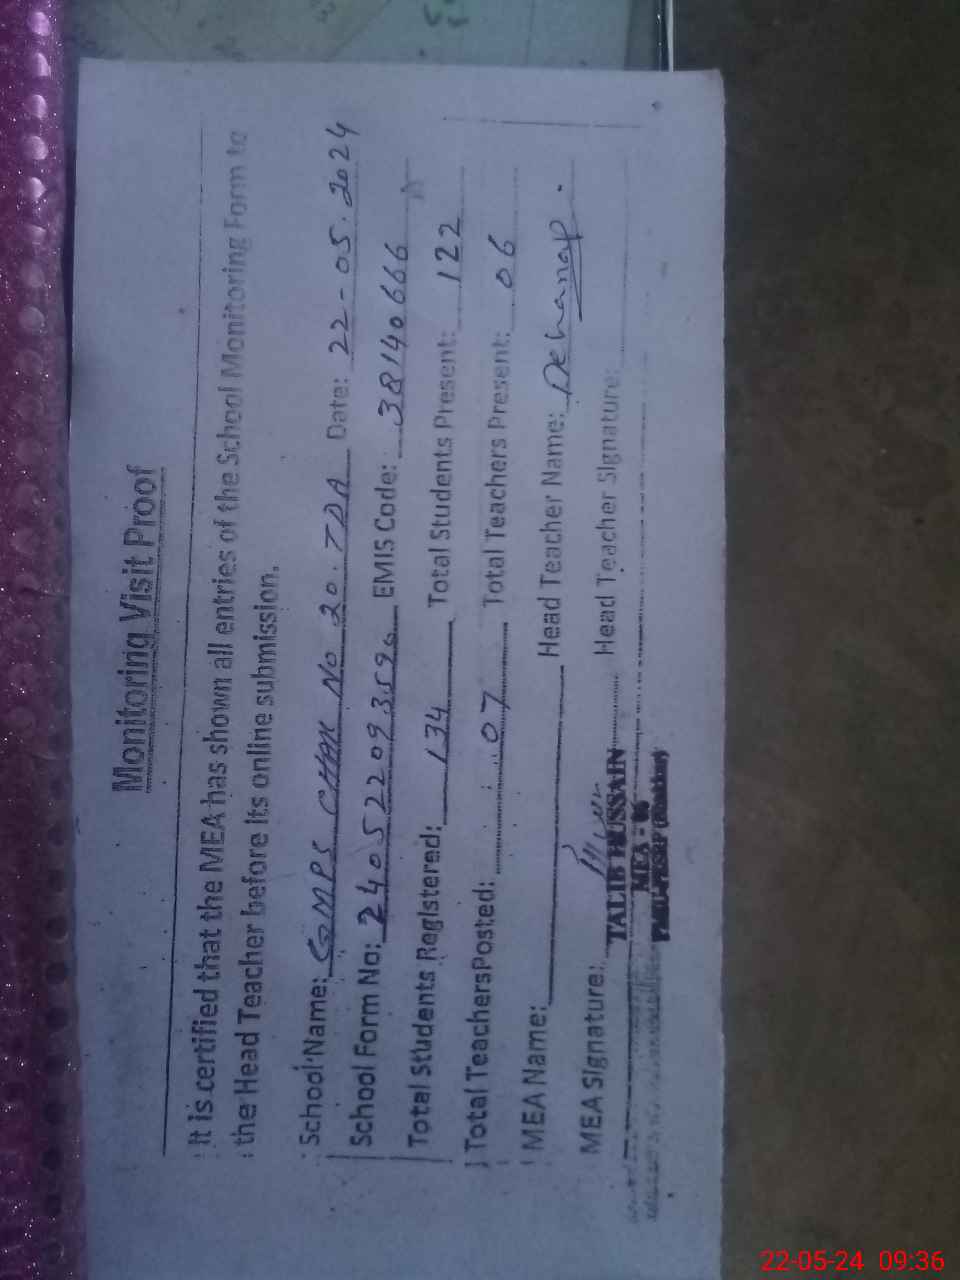 Monitoring Visit Proof
It is certified that the MEA has shown all entries of the School Monitoring Form to
the Head Teacher before its online submission.
School Name: GMPS CHAK No 20.TDA Date: 22-05.2024
School Form No: 240522093590 EMIS Code: 38140666
Total Students Registered: 134 Total Students Present: 122
Total Teachers Posted: 07 Total Teachers Present: 06
MEA Name: Head Teacher Name:
MEA Signature: Head Teacher Signature:
TALIB HUSSAIN
MEA - 06
22-05-24 09:36